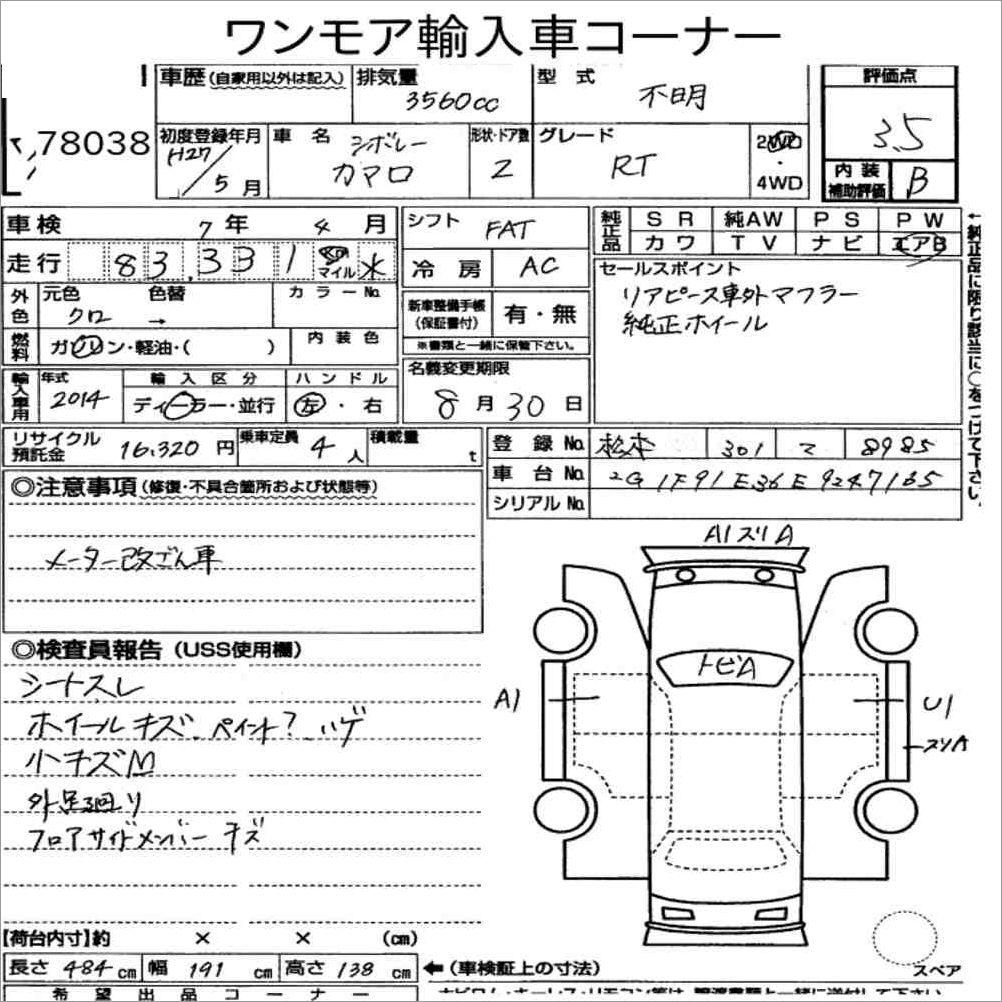 ワンモア輸入車コーナー
車歴(自家用以外は記入) 排気量 3560cc 型式 不明 評価点 3.5
78038
初度登録年月 H27/5月 車名 シボレー カマロ 形状・ドア数 2 グレード RT 2WD・4WD
内装補助評価 B
車検 7年 4月 シフト FAT
走行 83,331 マイル
冷房 AC
純正品 SR 純AW PS PW
カワ TV ナビ エアB
セールスポイント
リアピース車外マフラー
純正ホイール
外色 元色 クロ 色替 → カラーNo.
燃料 ガソリン・軽油・( ) 内装色
新車整備手帳(保証書付) 有・無
※書類と一緒に保管下さい。
輸入車用 年式 2014 輸入区分 ディーラー・並行 ハンドル 左・右
名義変更期限
8月30日
リサイクル預託金 16,320円 乗車定員 4人 積載量 t
登録No. 松本 301 マ 8985
車台No. 2G1F91E36E9247135
シリアルNo.
←純正品に限り該当に○をつけて下さい。
◎注意事項(修復・不具合箇所および状態等)
メーター改ざん車
◎検査員報告(USS使用欄)
シートスレ
ホイールキズ、ペイント?、ハゲ
小キズM
外足廻り
フロアサイドメンバーキズ
A1スリA
トビA
A1
U1
スリA
スペア
【荷台内寸】約 × × (cm)
長さ 484cm 幅 191cm 高さ 138cm ←(車検証上の寸法)
希望出品コーナー